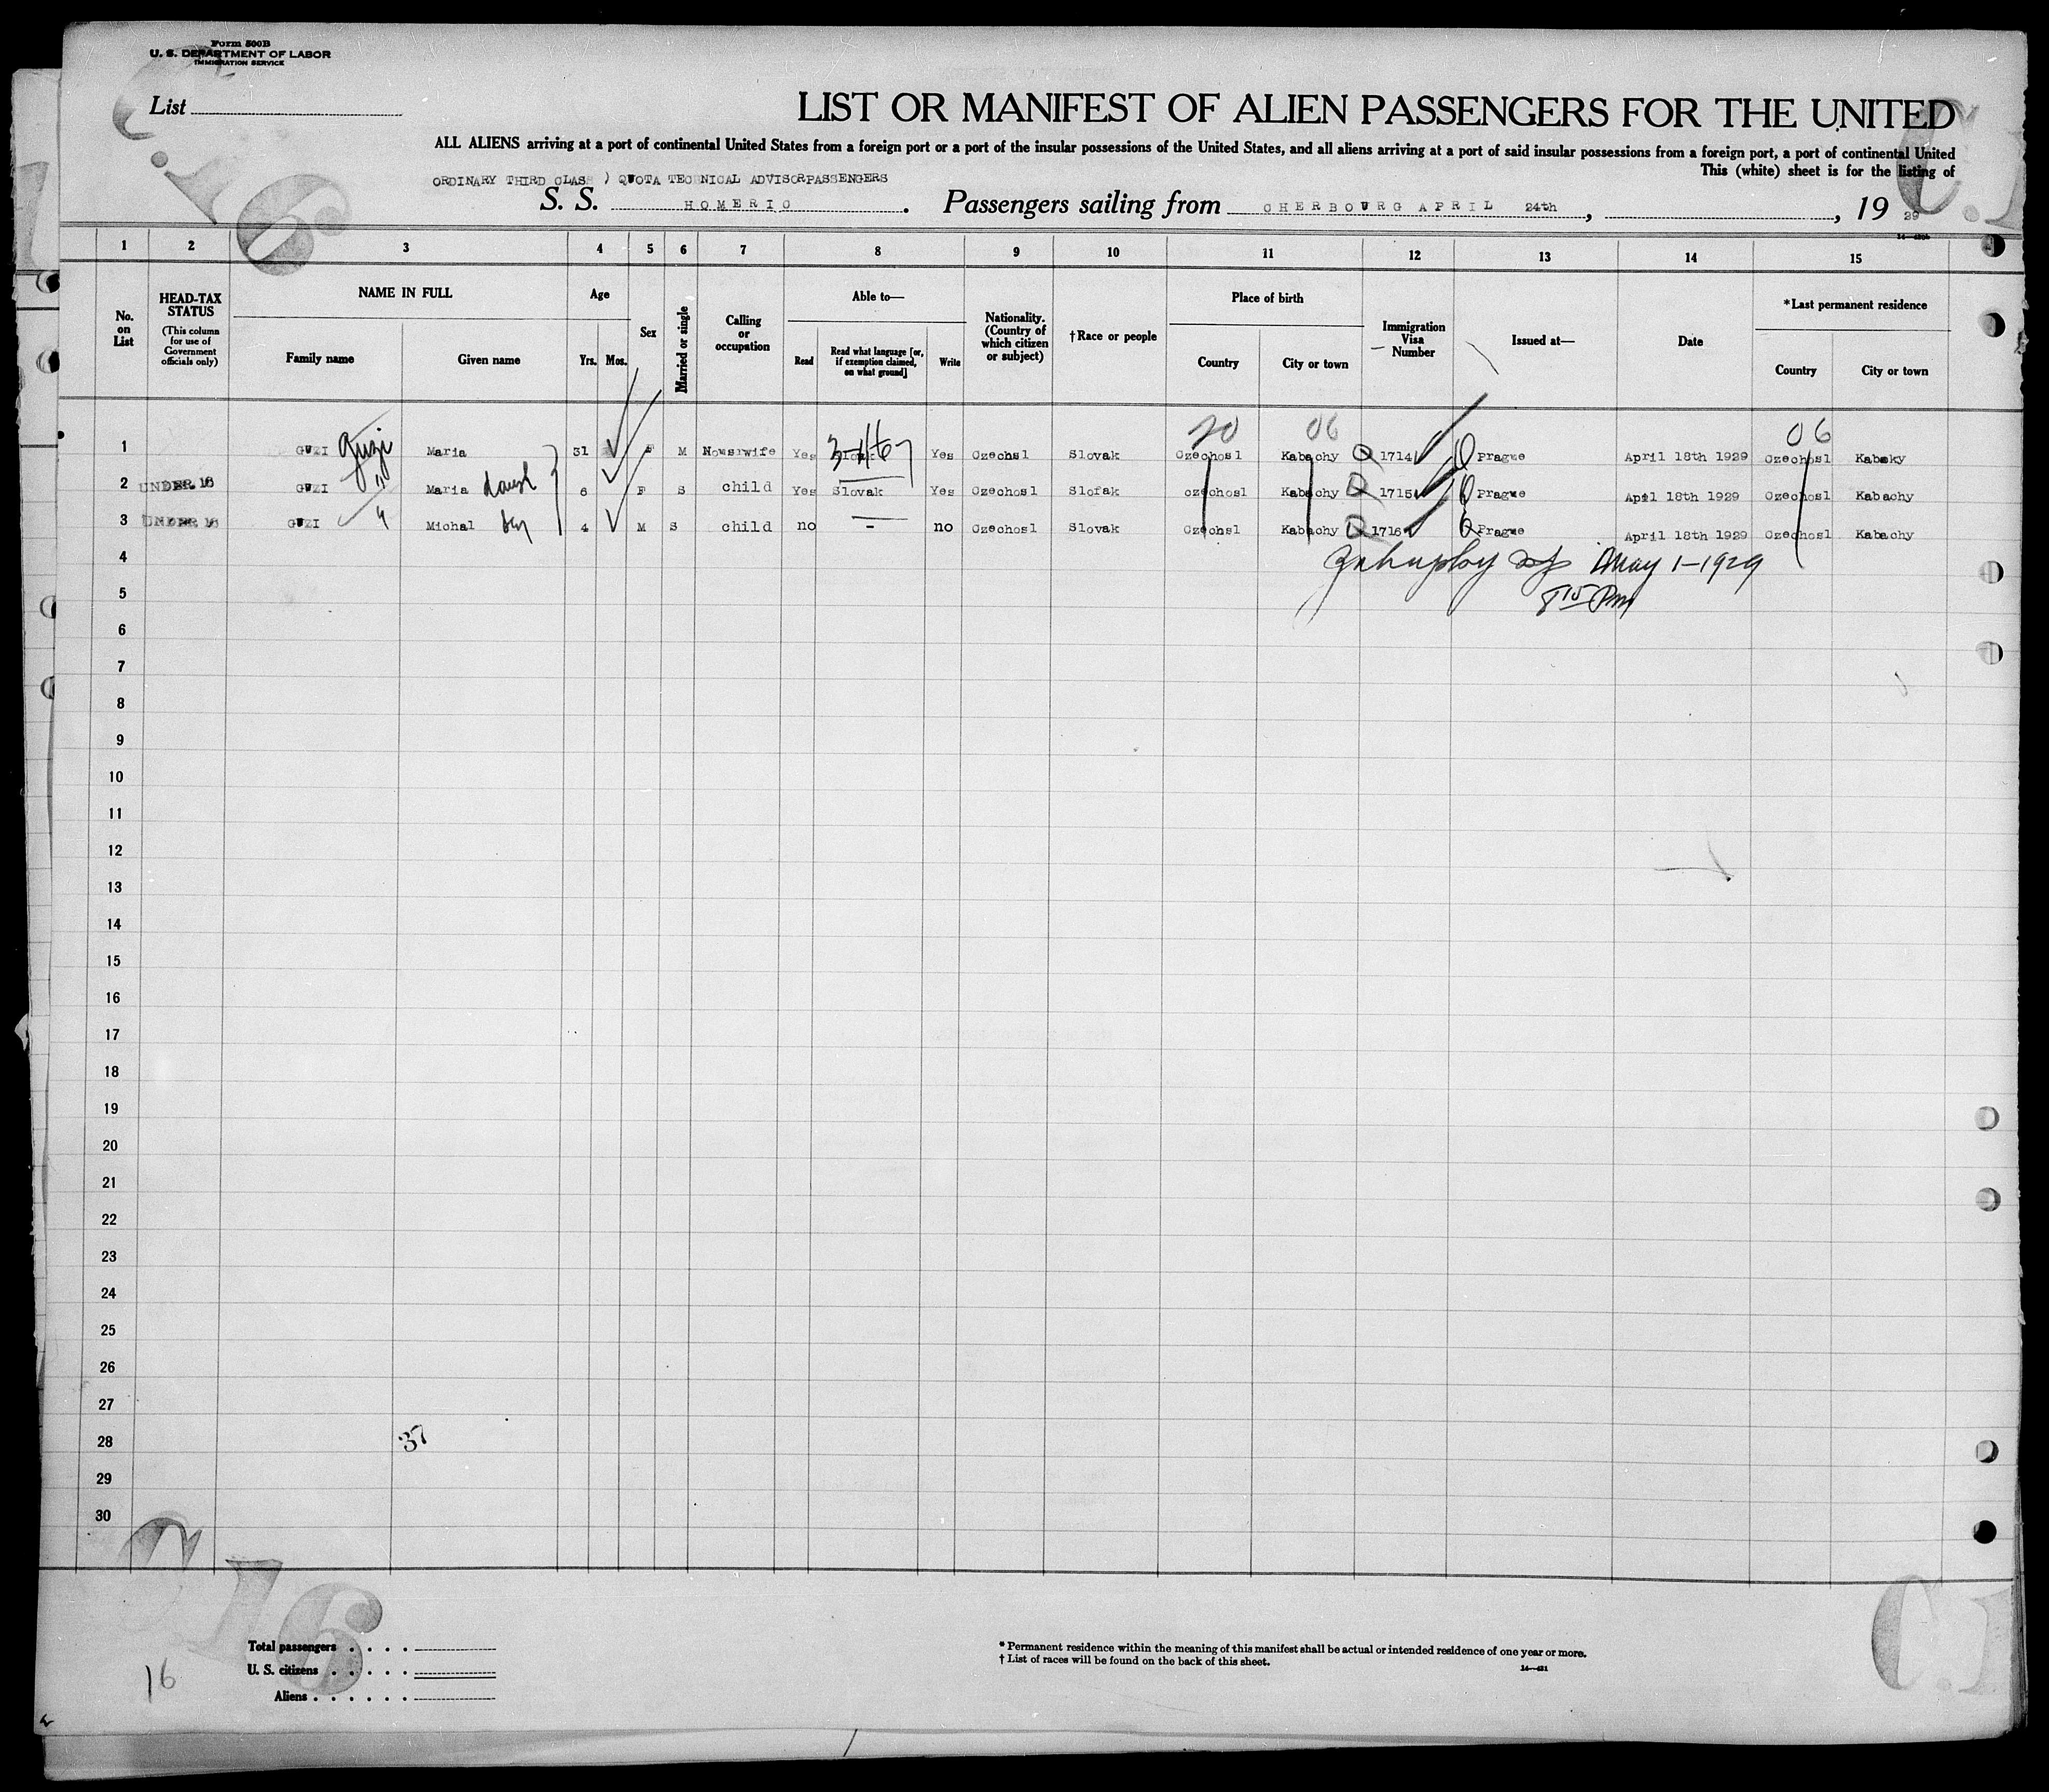 Form 500B
U. S. DEPARTMENT OF LABOR
IMMIGRATION SERVICE
List
LIST OR MANIFEST OF ALIEN PASSENGERS FOR THE UNITED
ALL ALIENS arriving at a port of continental United States from a foreign port or a port of the insular possessions of the United States, and all aliens arriving at a port of said insular possessions from a foreign port, a port of continental United
This (white) sheet is for the listing of
ORDINARY THIRD CLASS ) QUOTA TECHNICAL ADVISORPASSENGERS
S. S. HOMERIC . Passengers sailing from CHERBOURG APRIL 24th , , 19 29
1 2 3 4 5 6 7 8 9 10 11 12 13 14 15
No. on List
HEAD-TAX STATUS (This column for use of Government officials only)
NAME IN FULL
Family name Given name
Age
Yrs. Mos.
Sex
Married or single
Calling or occupation
Able to—
Read Read what language [or, if exemption claimed, on what ground] Write
Nationality. (Country of which citizen or subject)
†Race or people
Place of birth
Country City or town
Immigration Visa Number
Issued at—
Date
*Last permanent residence
Country City or town
20 06 06
1 GUZI Guzi Maria 31 F M Houswife Yes Yes Czechsl Slovak Czechosl Kabachy Q 1714 Q Prague April 18th 1929 Czechosl Kabaky
2 UNDER 16 GUZI " Maria daugh 6 F S child Yes Slovak Yes Czechosl Slofak czechosl Kabachy Q 1715 Q Prague April 18th 1929 Czechosl Kabachy
3 UNDER 16 GUZI " Michal 4 M S child no - no Czechosl Slovak Czechsl Kabachy Q 1716 Q Prague April 18th 1929 Czechosl Kabachy
4 May 1-1929
5 8 15 Pm
6
7
8
9
10
11
12
13
14
15
16
17
18
19
20
21
22
23
24
25
26
27
28 37
29
30
C.16
Total passengers . . . .
U. S. citizens . . . . .
Aliens . . . . . .
16
* Permanent residence within the meaning of this manifest shall be actual or intended residence of one year or more.
† List of races will be found on the back of this sheet.
14—431
C.1